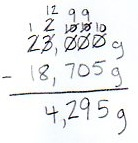 12 9 9
1 2 10 10 10
23,000g
- 18,705g
4,295g